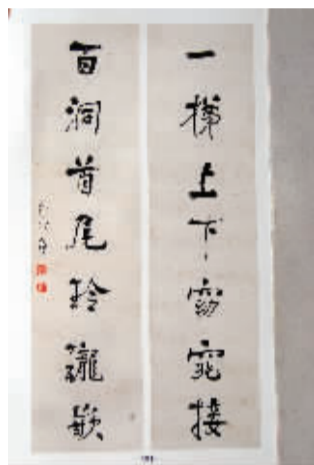 一梯上下窈窕接
百洞首尾玲瓏嵌